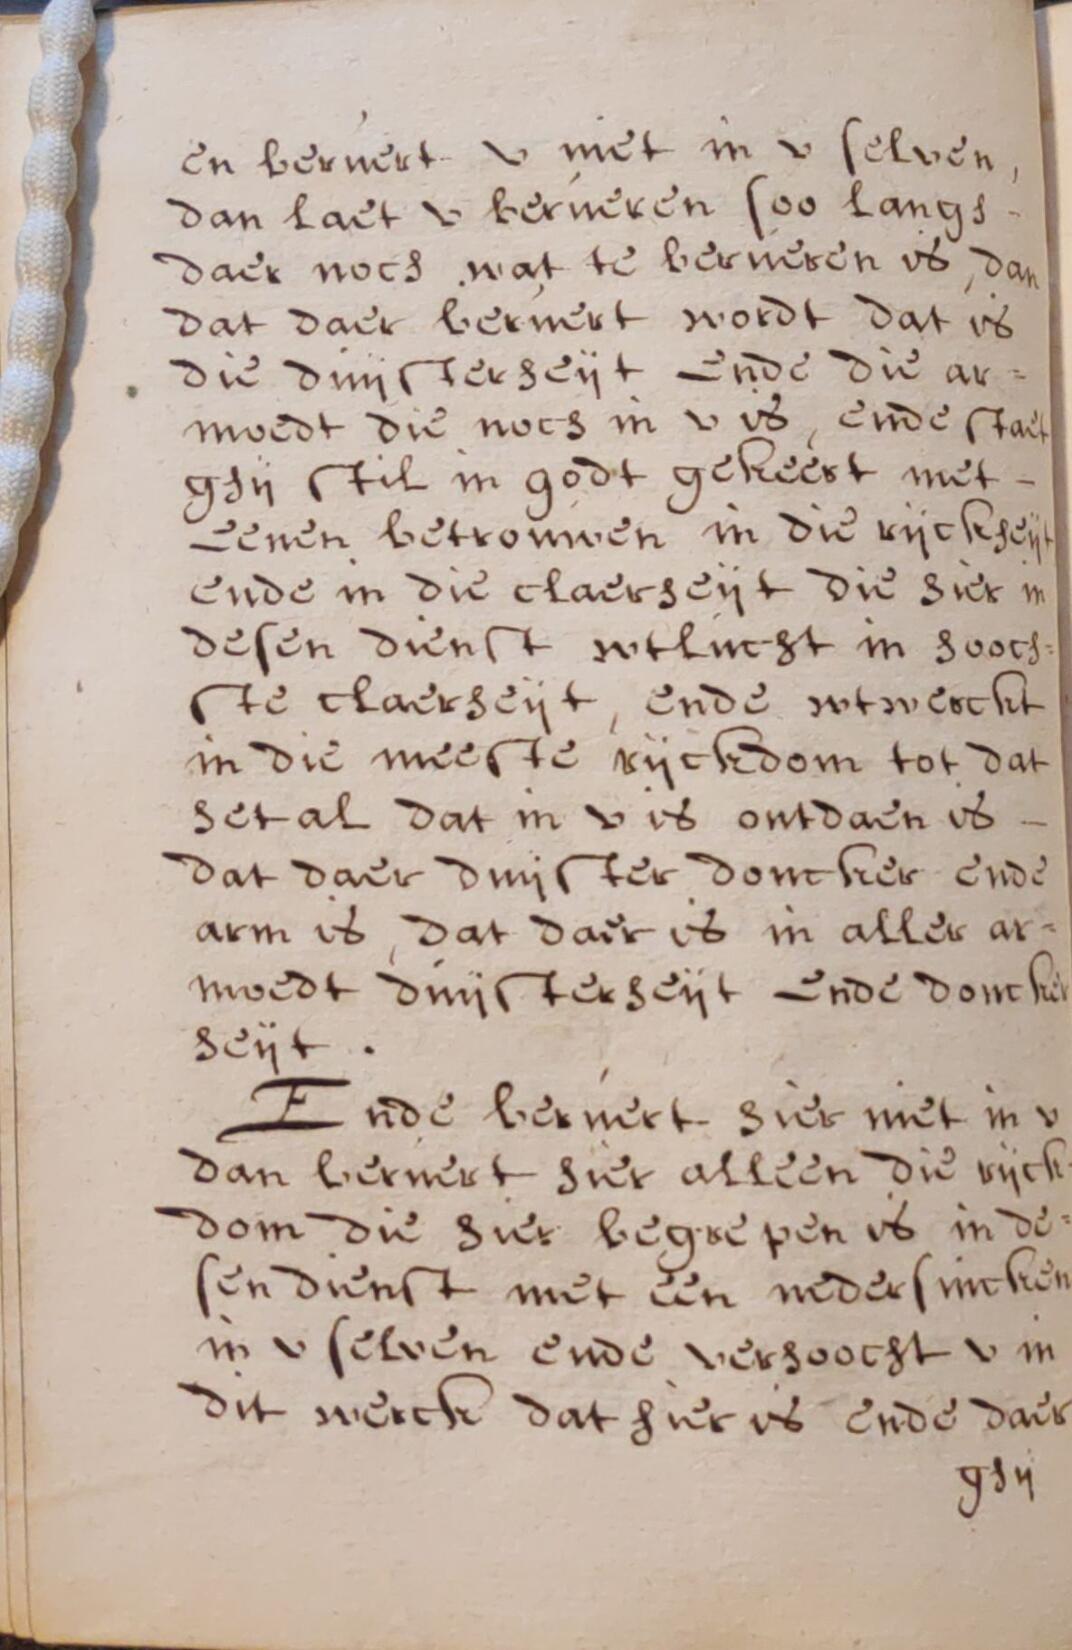 en beruert v niet in v selven,
dan laet v berueren soo langh -
daer noch wat te berueren is, dan
dat daer beruert wordt dat is
die duijsterheijt Ende die ar=
moedt die noch in v is, ende staet
ghij stil in godt gekeert met -
Eenen betrouwen in die rijckheijt
ende in die claerheijt die hier in
desen dienst wtlucht in hooch=
ste claerheijt, ende wtwerckt
in die meeste rijckdom tot dat
het al dat in v is ontdaen is -
dat daer duijster doncker ende
arm is, dat daer is in aller ar=
moedt duijsterheijt Ende doncker
heijt.
Ende beruert hier niet in v
dan beruert hier alleen die rijck-
dom die hier begrepen is in de=
sen dienst met een nedersincken
in v selven ende verhoocht v in
dit werck dat hier is ende daer
ghij